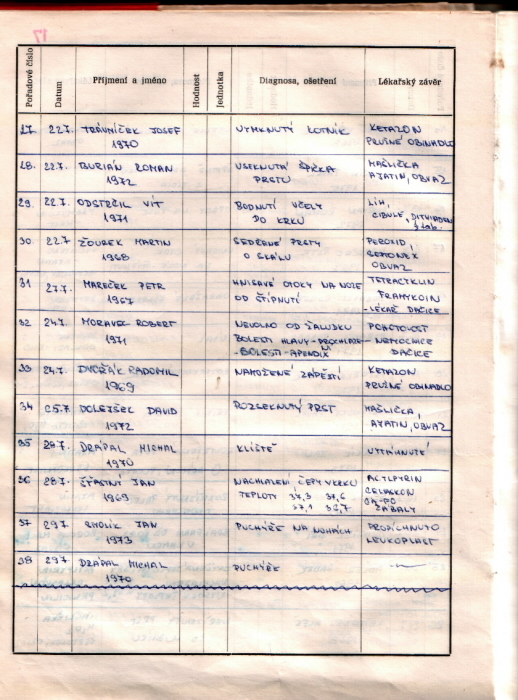 17
Pořadové číslo Datum Příjmení a jméno Hodnost Jednotka Diagnosa, ošetření Lékařský závěr
27. 22.7. TRÁVNÍČEK JOSEF VYMKNUTÝ KOTNÍK KETAZON
1970 PRUŽNÉ OBINADLO
28. 22.7. BURIÁN ROMAN USEKNUTÁ ŠPIČKA MAŠLIČKA
1972 PRSTU AJATIN, OBVAZ
29. 22.7. ODSTRČIL VÍT BODNUTÍ VČELY LÍH,
1971 DO KRKU CIBULE, DITHIADEN
1 tab.
30. 22.7 ŽOUREK MARTIN SEDŘENÉ PRSTY PEROXID,
1968 O SKÁLU SEPTONEX
OBVAZ
31 27.7. MAREČEK PETR HNISAVÉ OTOKY NA NOZE TETRACYKLIN
1967 OD ŠTÍPNUTÍ FRAMYKOIN
-LÉKAŘ DAČICE
32 24.7. MORAVEK ROBERT NEVOLNO OD ŽALUDKU
1971 BOLESTI HLAVY - - NEMOCNICE
- BOLESTI - APENDIX DAČICE
33 24.7. DVOŘÁK RADOMIL NAMOŽENÉ ZÁPĚSTÍ KETAZON
1969 PRUŽNÉ OBINADLO
34 25.7 DOLEŽŠEK DAVID ROZSEKNUTÝ PRST MAŠLIČKA,
1972 AJATIN, OBVAZ
35 28.7. DRÁPAL MICHAL KLÍŠTĚ VYTÁHNUTÉ
1970
36 28.7. ŠŤASTNÝ JAN NACHLAZENÍ, ČEPY V KRKU ACYLPYRIN
1969 TEPLOTY 37,3 CELASKON
37,1 36,7 ZÁBALY
37 29.7. SMOLÍK JAN PUCHÝŘE NA NOHÁCH PROPÍCHNUTO
1973 LEUKOPLAST
38 29.7 DRÁPAL MICHAL PUCHÝŘE
1970